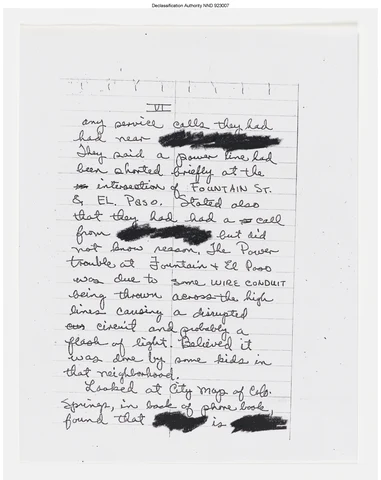 Declassification Authority NND 923007
VI
any service calls they had
had near
They said a power line had
been shorted briefly at the
intersection of FOUNTAIN ST.
& EL. Paso. Stated also
that they had had a call
from but did
not know reason. The Power
trouble at Fountain & El Paso
was due to some WIRE CONDUIT
being thrown across the high
lines causing a disrupted
circuit and probably a
flash of light. Believed it
was done by some kids in
that neighborhood.
Looked at City map of Colo.
Springs, in back of phone book,
found that is